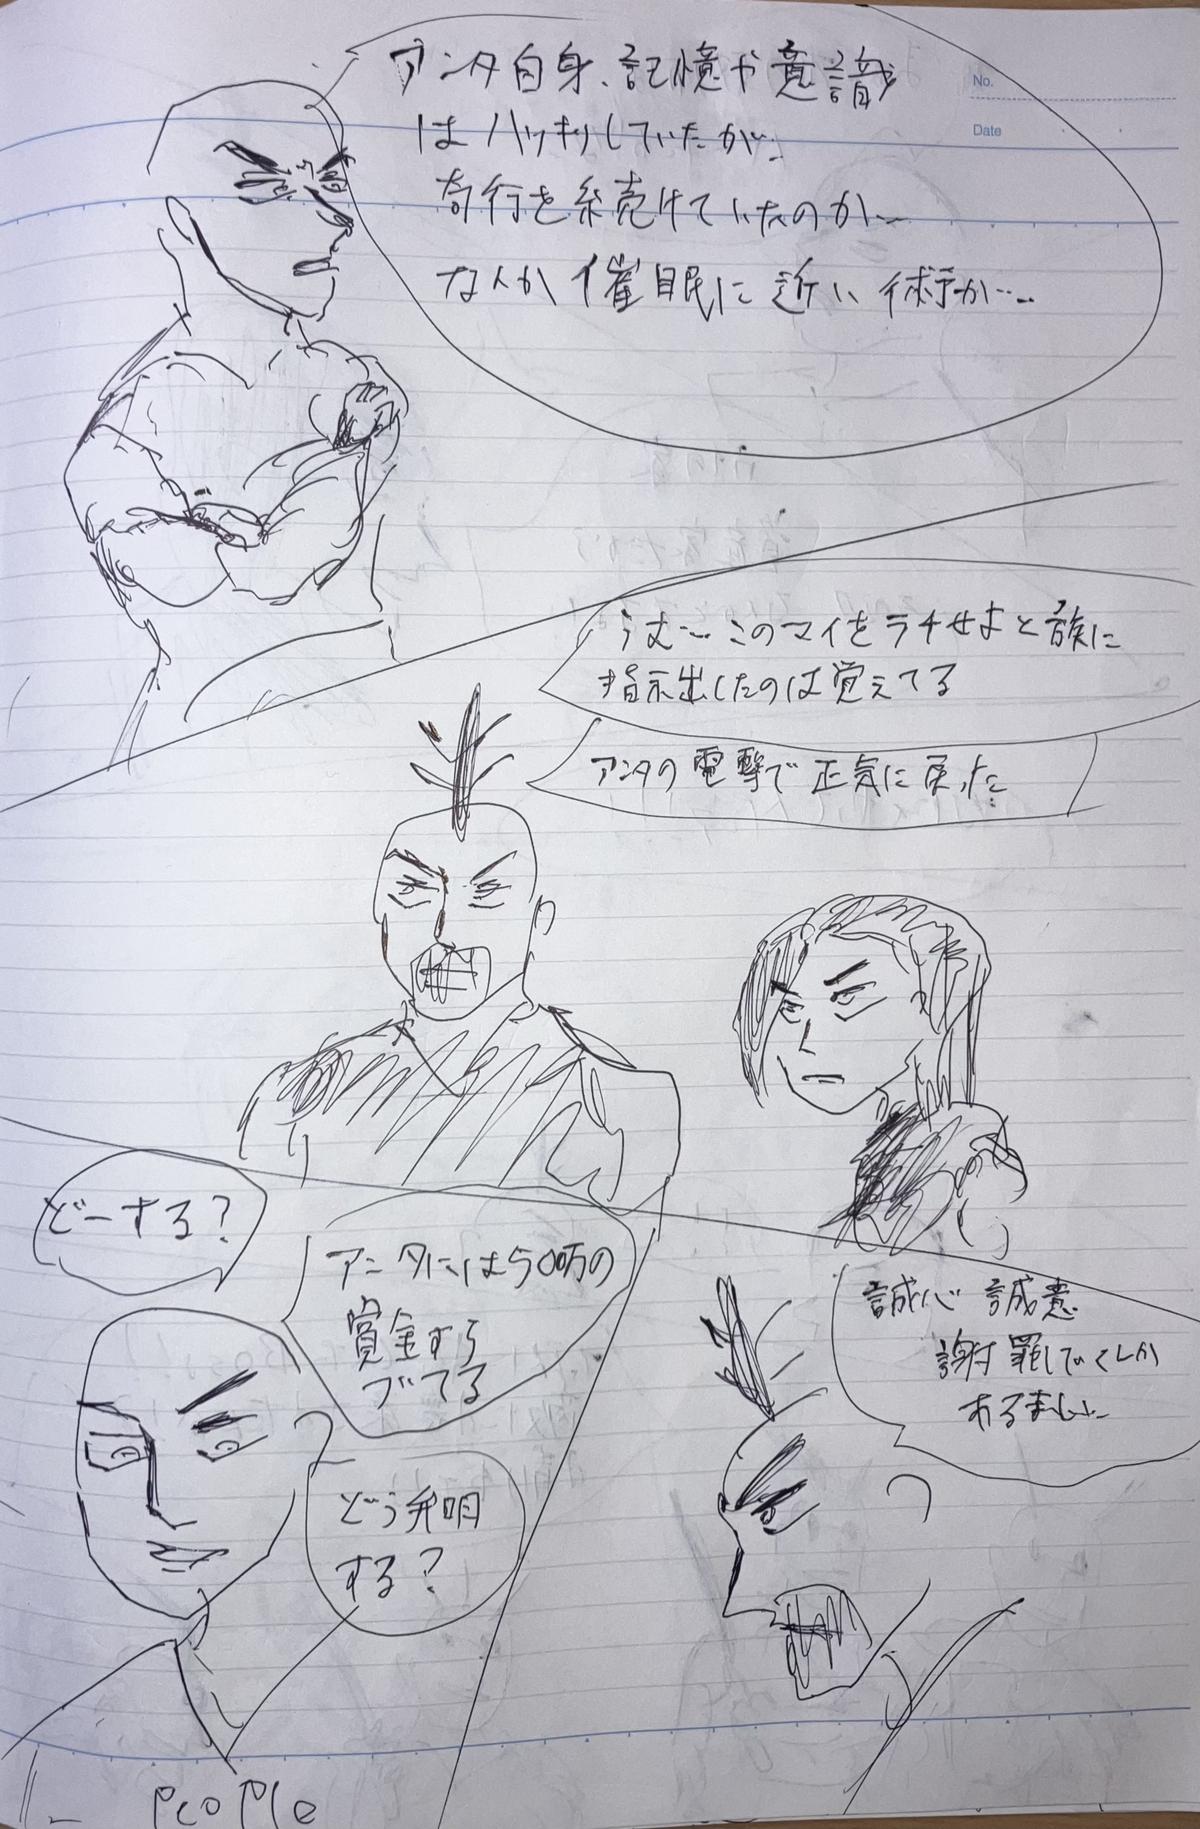 No.
Date
アンタ自身、記憶や意識
はハッキリしていたが、
奇行を続けていたのか…
なんか催眠に近い術か……
うむ… このマイをラチせよと族に
指示出したのは覚えてる
アンタの電撃で正気に戻った…
どーする?
アンタには500万の
賞金すら
ついてる
どう弁明
する?
誠心誠意
謝罪していくしか
あるまい…
PeoPle